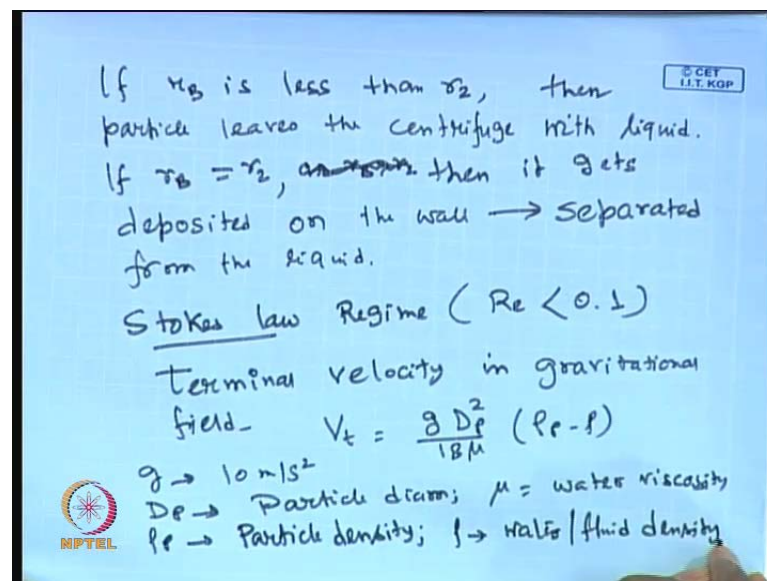 If r_B is less than r₂, then
© CET
I.I.T. KGP
particle leaves the centrifuge with liquid.
If r_B = r₂, then it gets
deposited on the wall → separated
from the liquid.
Stokes law Regime (Re < 0.1)
Terminal velocity in gravitational
field- V_t = g D_p² / 18μ (ρ_p - ρ)
g → 10 m/s²
D_p → Particle diam; μ = water viscosity
ρ_p → Particle density; ρ → water/fluid density
NPTEL